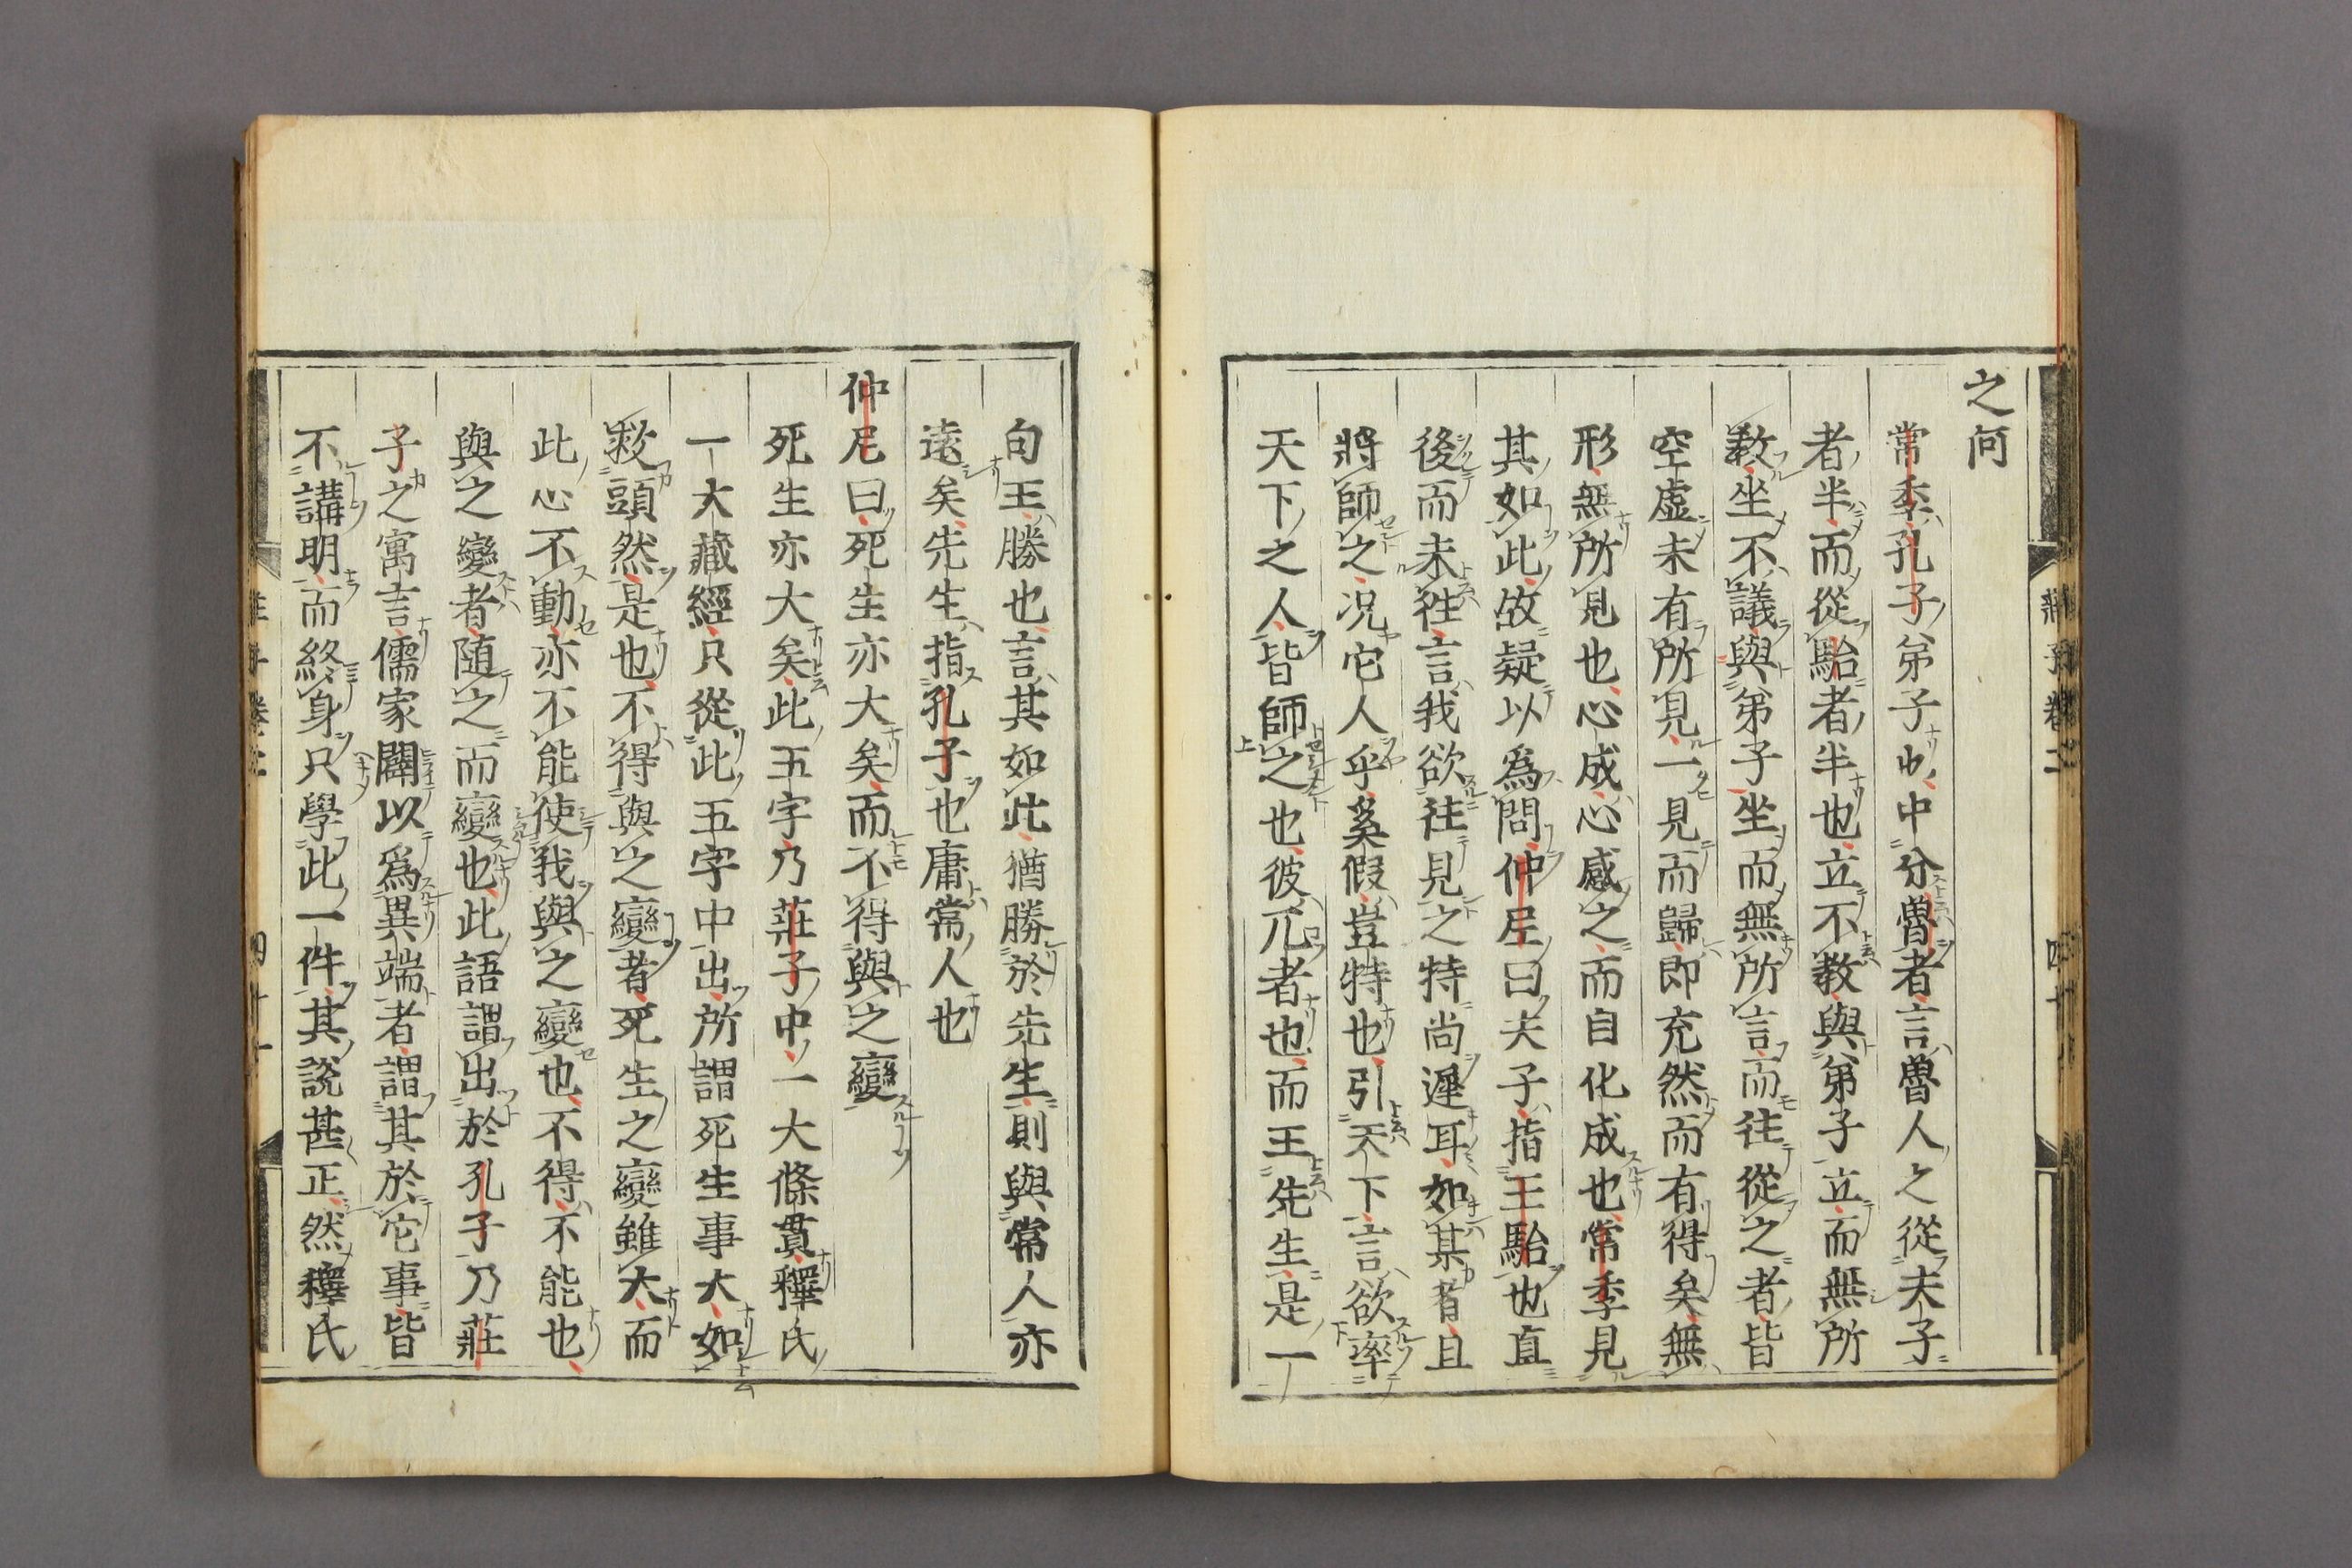 之何
常季孔子弟子也中分魯者言魯人之從夫子
者半而從駘者半也立不教與弟子立而無所
教坐不議與弟子坐而無所言而往從之者皆
空虛未有所見一見而歸即充然而有得矣無
形無所見也心成心感之而自化成也常季見
其如此故疑以為問仲尼曰夫子指王駘也直
後而未往言我欲往見之特尚遲耳如某者且
將師之况它人乎奚假豈特也引天下言欲率
天下之人皆師之也彼兀者也而王先生是一
句王勝也言其如此猶勝於先生則與常人亦
遠矣先生指孔子也庸常人也
仲尼曰死生亦大矣而不得與之變
死生亦大矣此五字乃莊子中一大條貫釋氏
一大藏經只從此五字中出所謂死生事大如
救頭然是也不得與之變者死生之變雖大而
此心不動亦不能使我與之變也不得不能也
與之變者隨之而變也此語謂出於孔子乃莊
子之寓言儒家闢以為異端者謂其於它事皆
不講明而終身只學此一件其說甚正然釋氏